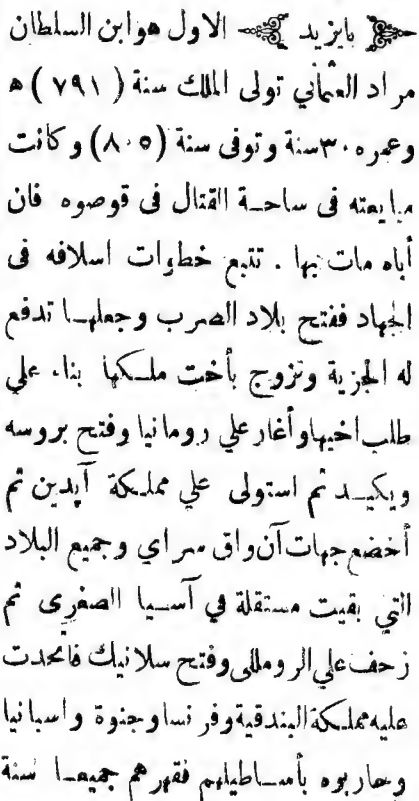 بايزيد الاول هو ابن السلطان
مراد العثماني تولى الملك سنة (٧٩١) ه
وعمره ٣٠ سنة وتوفى سنة (٨٠٥) وكانت
مبايعته فى ساحة القتال فى قوصوه فان
أباه مات بها . تتبع خطوات اسلافه فى
الجهاد ففتح بلاد الصرب وجعلها تدفع
له الجزية وتزوج بأخت ملكها بناء علي
طلب اخيها وأغار علي رومانيا وفتح بروسه
ويكيد ثم استولى علي مملكة آيدين ثم
أخضع جهات آن واق سراي وجميع البلاد
التي بقيت مستقلة في آسيا الصغرى ثم
زحف علي الروملى وفتح سلانيك فاتحدت
عليه مملكة البندقية وفرنسا وجنوة واسبانيا
وحاربوه بأساطيلهم فقهرهم جميعا سنة